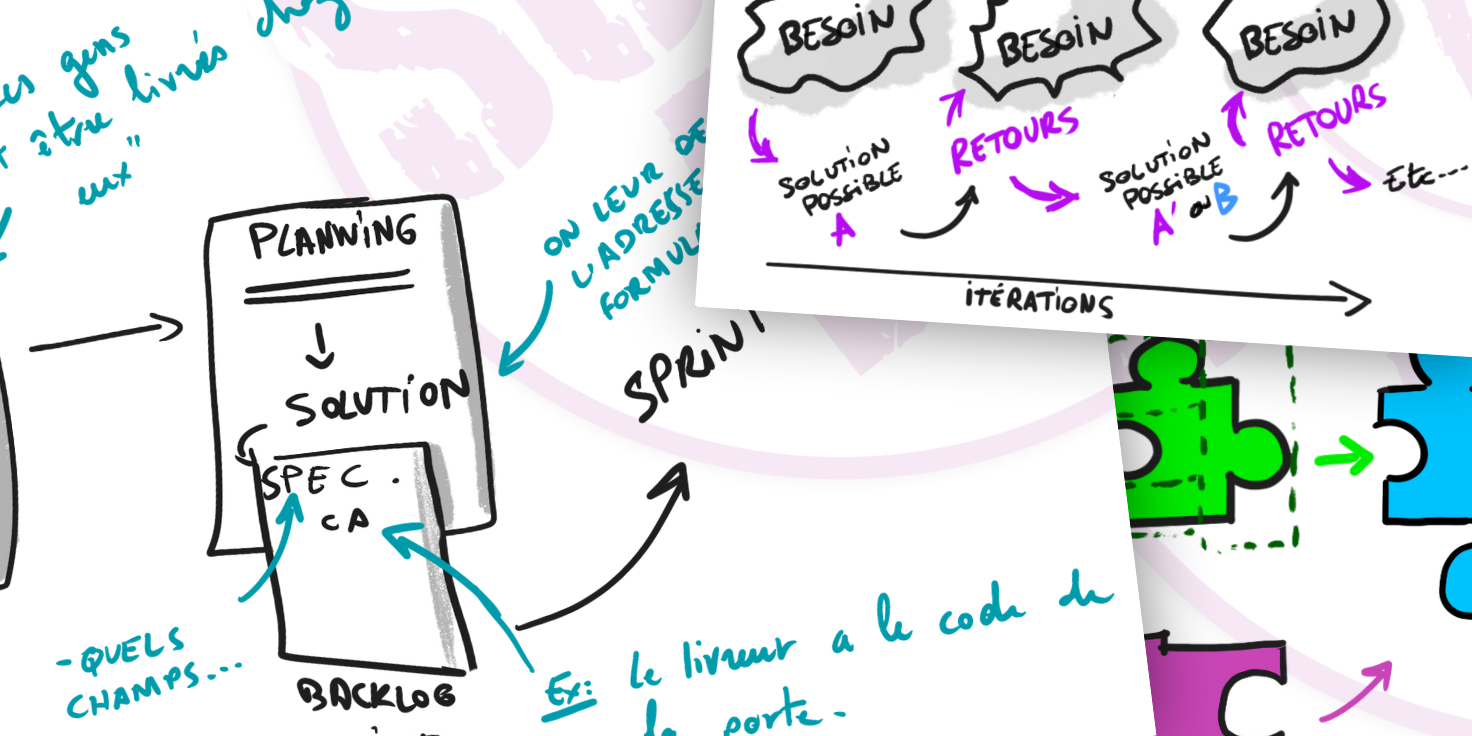 chez
gens
être livrés
eux"
PLANNING
SOLUTION
SPEC.
CA
- QUELS
CHAMPS...
BACKLOG
ON LEUR DE
L'ADRESSE
FORMUL
SPRINT
Ex: Le livreur a le code de
la porte.
BESOIN
BESOIN
BESOIN
RETOURS
RETOURS
SOLUTION
POSSIBLE
A
SOLUTION
POSSIBLE
A' ou B
Etc...
ITÉRATIONS